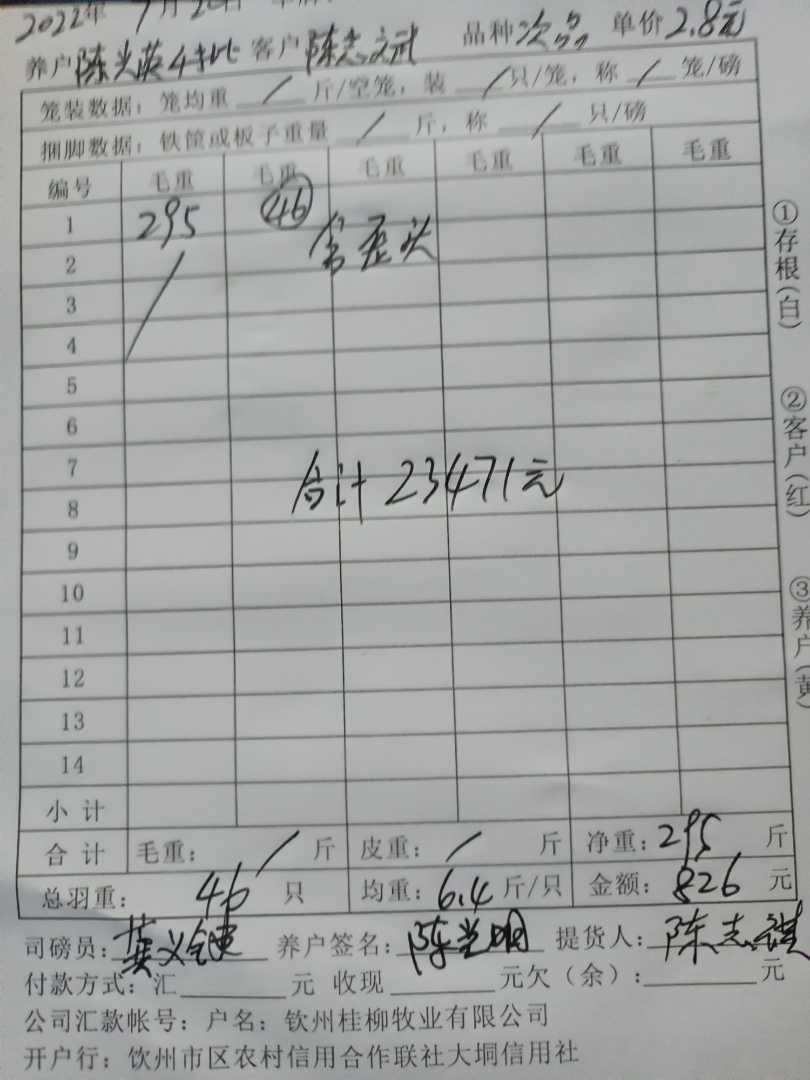 2022年 7月
养户 陈光英4批 客户 陈志斌 品种 次品 单价 2.8元
笼装数据：笼均重 / 斤/空笼，装 / 只/笼，称 / 笼/磅
捆脚数据：铁筐或板子重量 / 斤，称 / 只/磅
编号 毛重 毛重 毛重 毛重 毛重 毛重
1 295 46
含歪头
2
3
4
5
6
7
合计 23471元
8
9
10
11
12
13
14
小计
合计 毛重： / 斤 皮重： / 斤 净重：295 斤
总羽重： 46 只 均重：6.4 斤/只 金额：826 元
司磅员： 养户签名：陈光明 提货人：陈志
付款方式：汇 元 收现 元欠（余）： 元
公司汇款帐号：户名：钦州桂柳牧业有限公司
开户行：饮州市区农村信用合作联社大垌信用社
①存根(白)
②客户(红)
③养户(黄